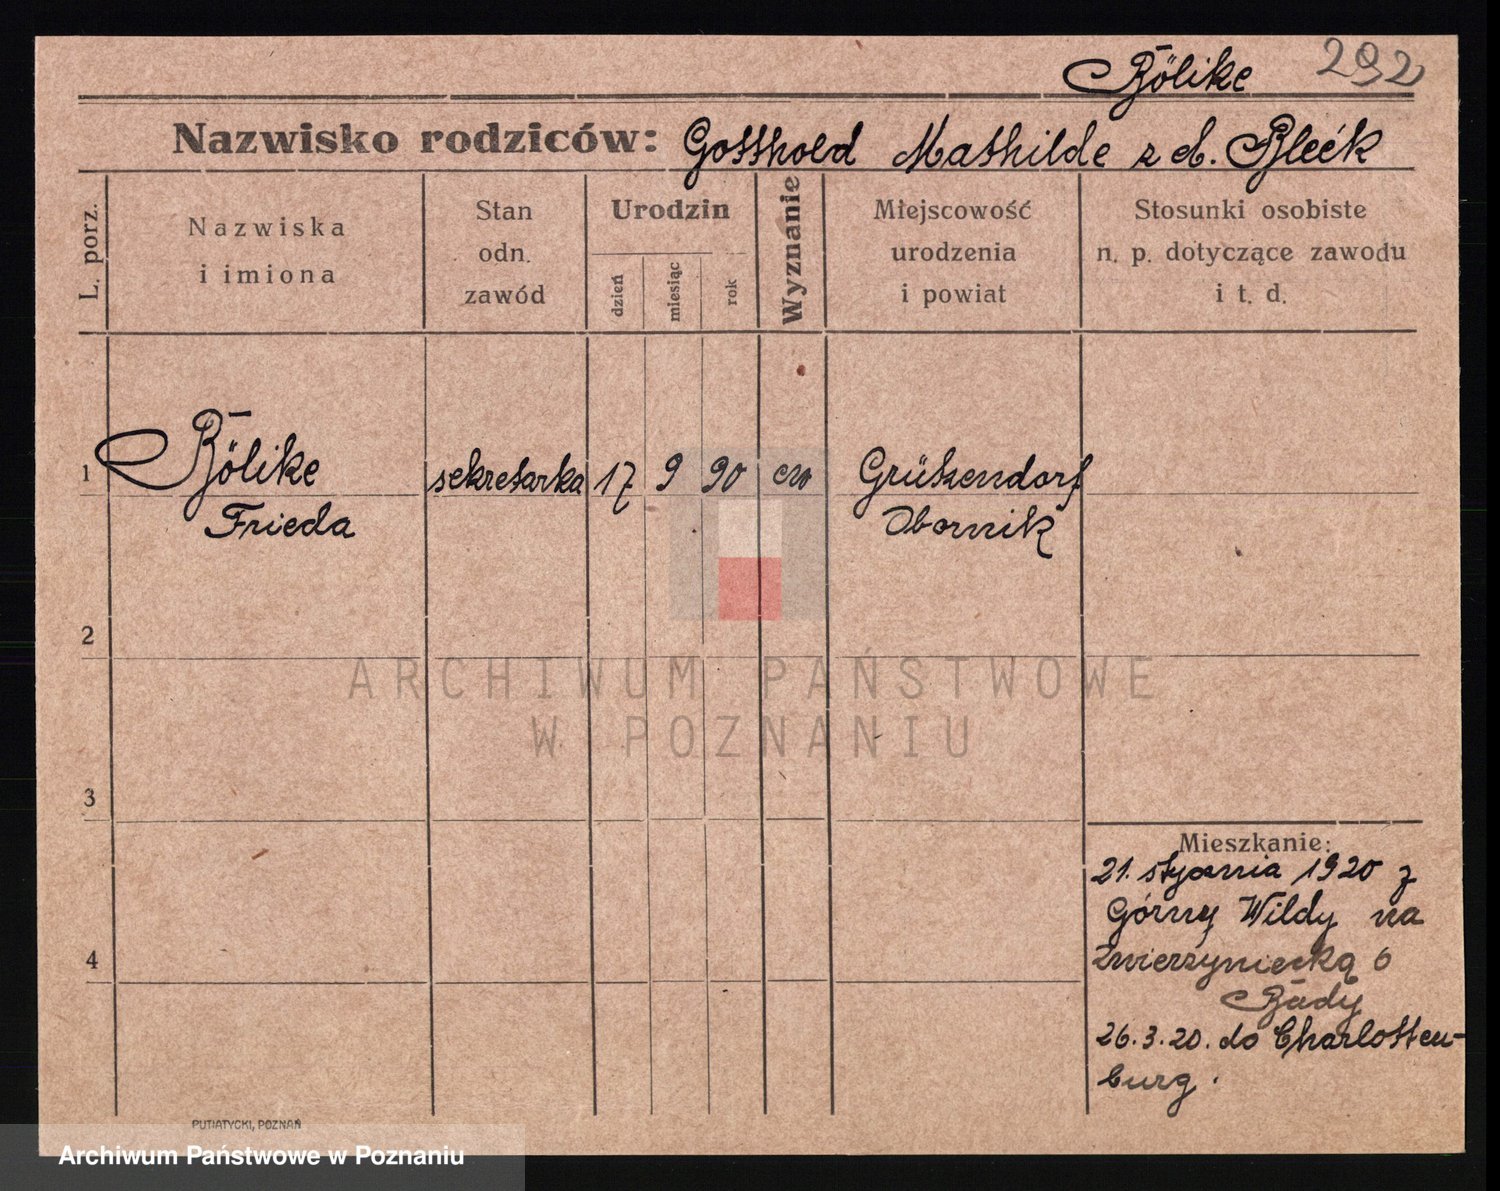 Bölike 292
Nazwisko rodziców: Gotthold Mathilde z d. Bleck
L. porz.
Nazwiska
i imiona
Stan
odn.
zawód
Urodzin
dzień miesiąc rok
Wyznanie
Miejscowość
urodzenia
i powiat
Stosunki osobiste
n. p. dotyczące zawodu
i t. d.
1 Bölike sekretarka 17 9 90 ew Grützendorf
Frieda Obornik
2
ARCHIWUM PAŃSTWOWE
W POZNANIU
3
Mieszkanie:
21. stycznia 1920 z
Górny Wildy na
4
Zwierzyniecką 6
26.3.20. do Charlotten-
burg.
PUTIATYCKI, POZNAŃ
Archiwum Państwowe w Poznaniu